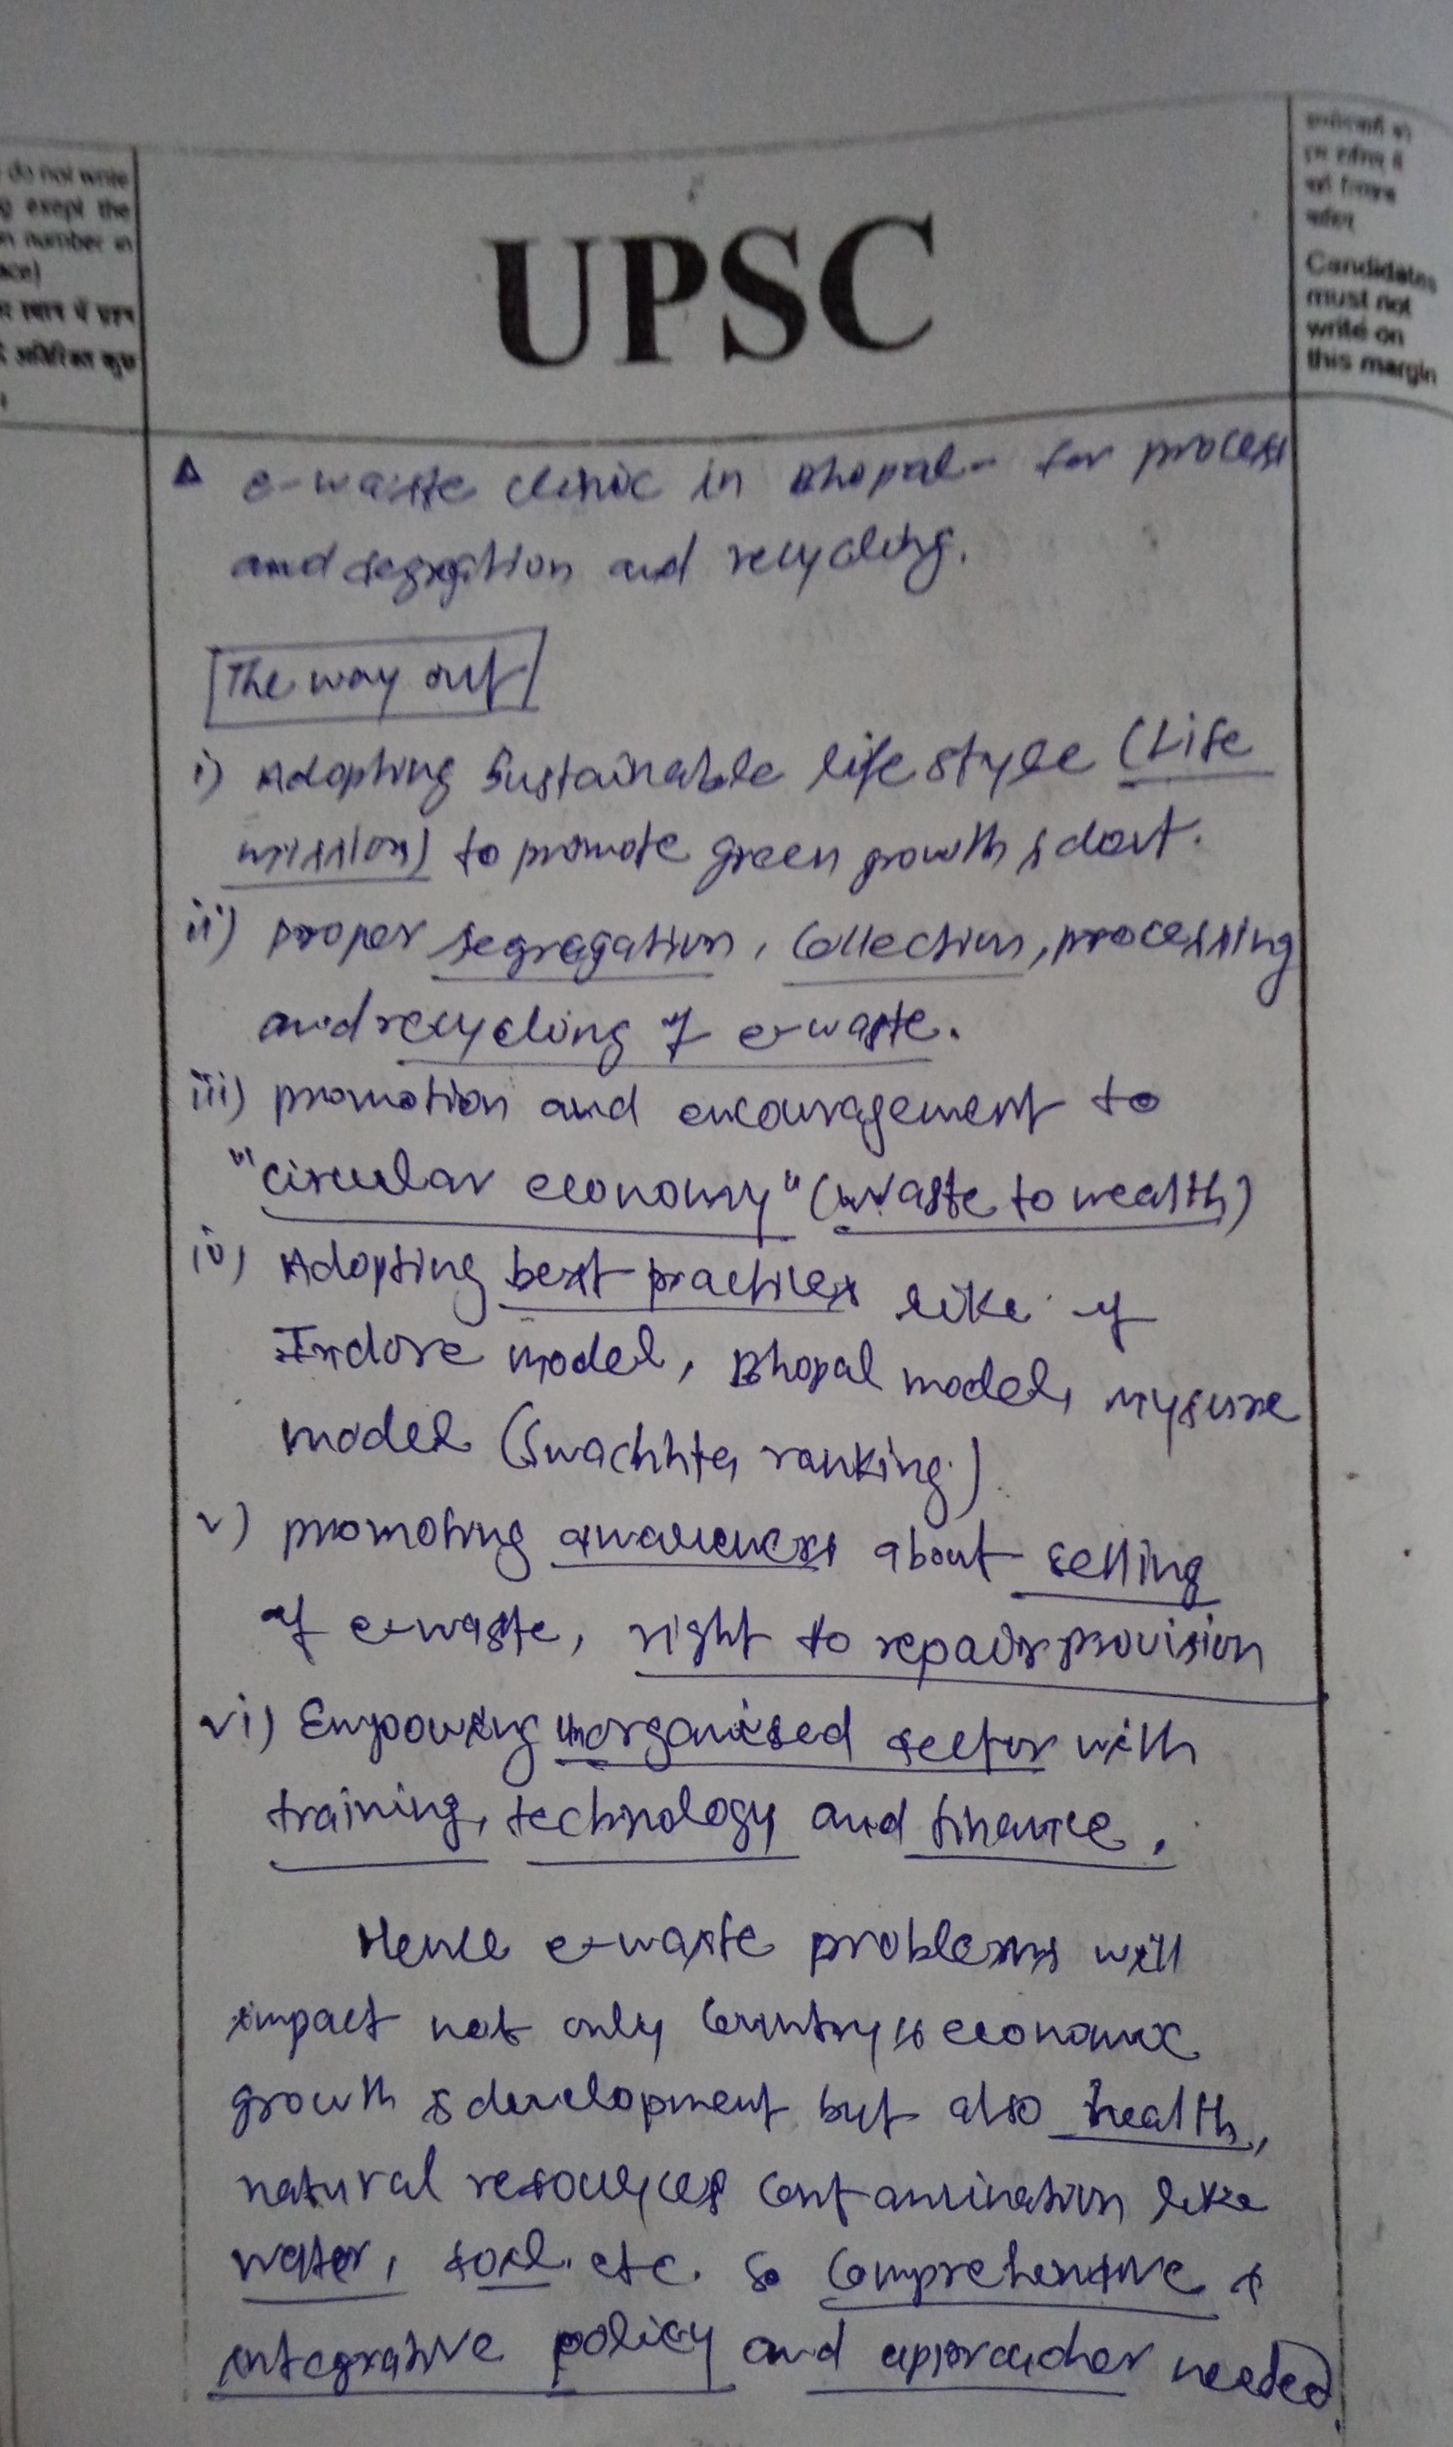 do not write
g exept the
n number in
ace)
UPSC
Candidates
must not
write on
this margin
e-waste clinic in Bhopal - for process
and segregation and recycling.
The way out
i) Adopting Sustainable life style (Life
mission) to promote green growth &
ii) proper segregation, Collection, processing
and recycling of e-waste.
iii) promotion and encouragement to
"circular economy" (waste to wealth)
iv) Adopting best practices like of
Indore model, Bhopal model, mysure
model (Swachhta ranking)
v) promoting awareness about selling
of e-waste, right to repair provision
vi) Empowring unorganised sector with
training, technology and finance.
Hence e-waste problems will
impact not only Country's economic
growth & development but also health,
natural resources contamination like
water, soil. etc. So Comprehensive &
integrative policy and approaches needed.